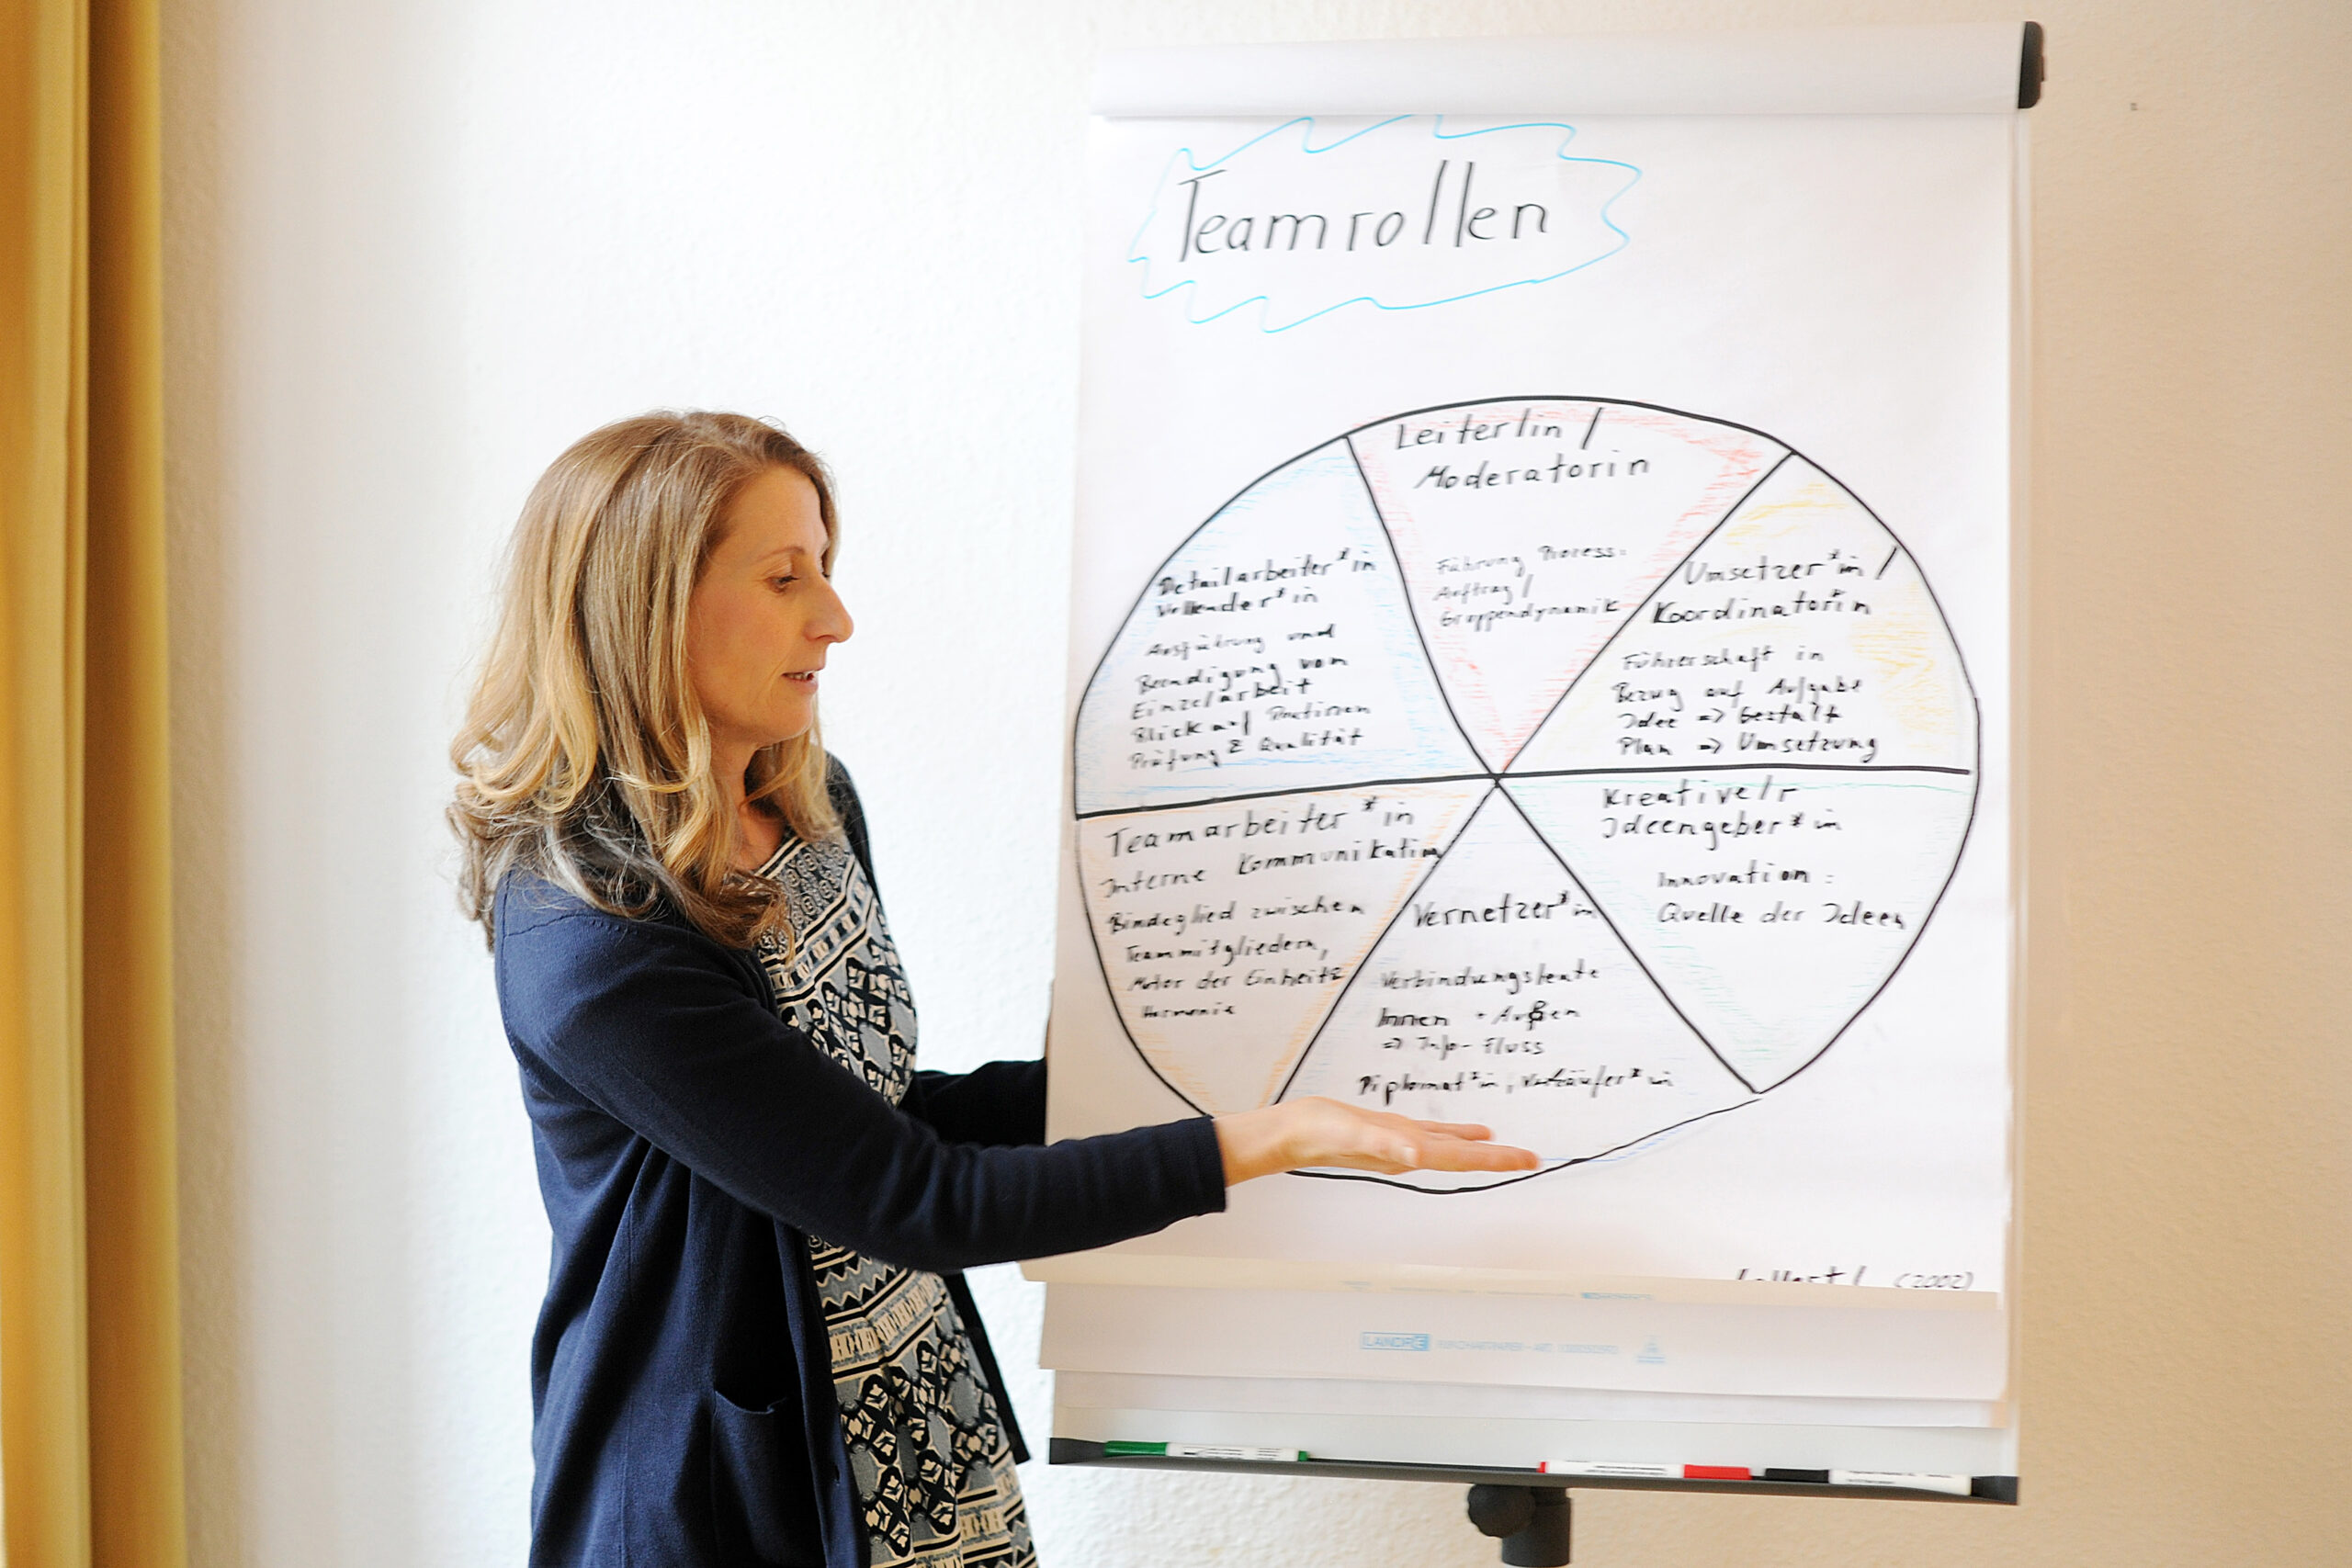 Teamrollen
Leiter/in /
Moderatorin
Führung Prozess:
Auftrag /
Gruppendynamik
Umsetzer*in /
Koordinator*in
Führerschaft in
Bezug auf Aufgabe
Idee => Gestalt
Plan => Umsetzung
Kreative/r
Ideengeber*in
Innovation:
Quelle der Ideen
Vernetzer*in
Verbindungsleute
Innen + Außen
=> Info-Fluss
Diplomat*in, Verkäufer*in
Teamarbeiter*in
Interne Kommunikation
Bindeglied zwischen
Teammitgliedern,
Motor der Einheit &
Harmonie
Detailarbeiter*in
Vollender*in
Ausführung und
Beendigung von
Einzelarbeit
Blick auf Routinen
Prüfung & Qualität
(2002)
LANDRÉ